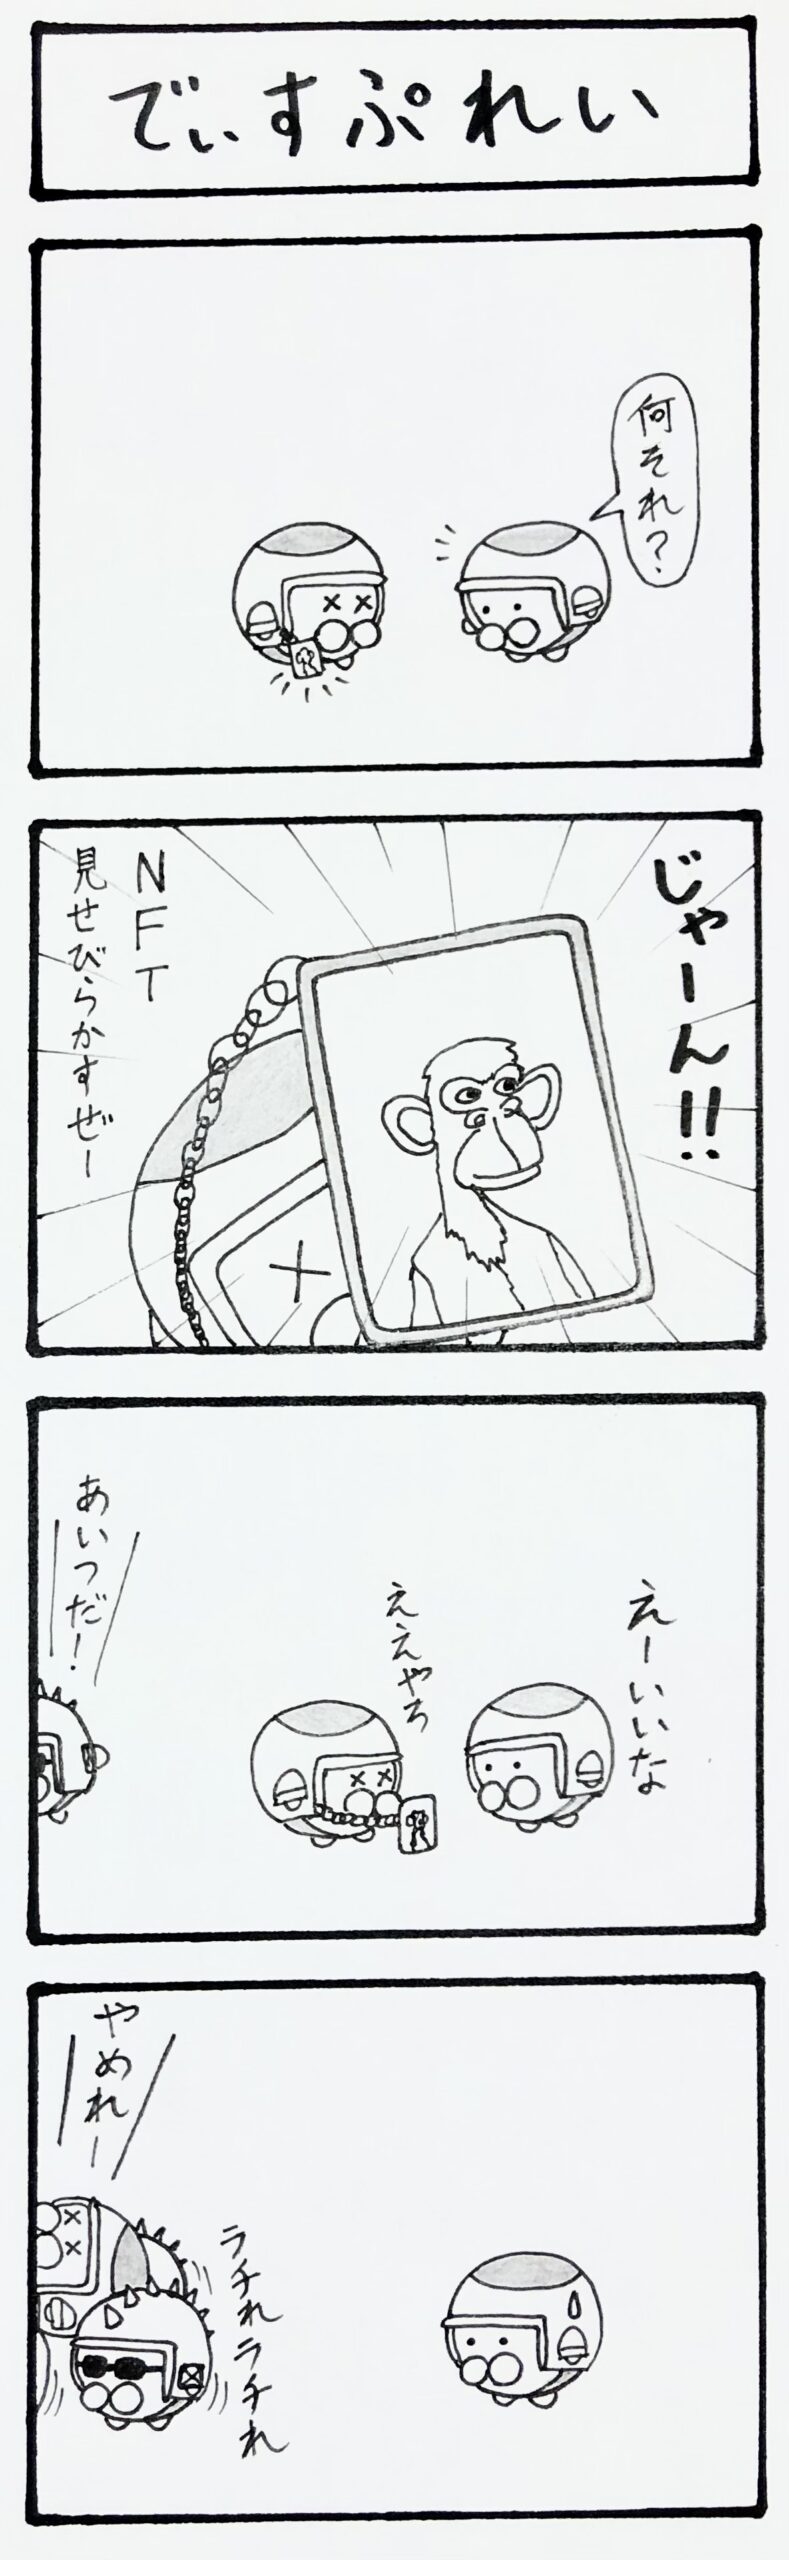 でぃすぷれい
何それ?
じゃーん!!
NFT
見せびらかすぜー
えーいいな
ええやろ
あいつだ!
やめれー
ラチれラチれ